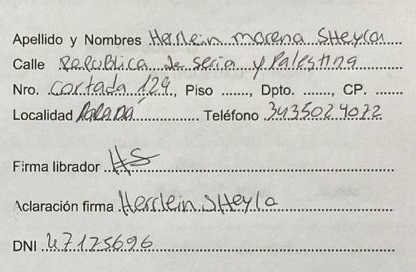 Apellido y Nombres Herlein morena SHeyla
Calle Republica de Seria y Palestina
Nro. Cortada 129, Piso ......, Dpto. ......, CP. ......
Localidad PARANÁ Teléfono 3435024072
Firma librador HS
Aclaración firma Herrlein SHeyla
DNI 47125696